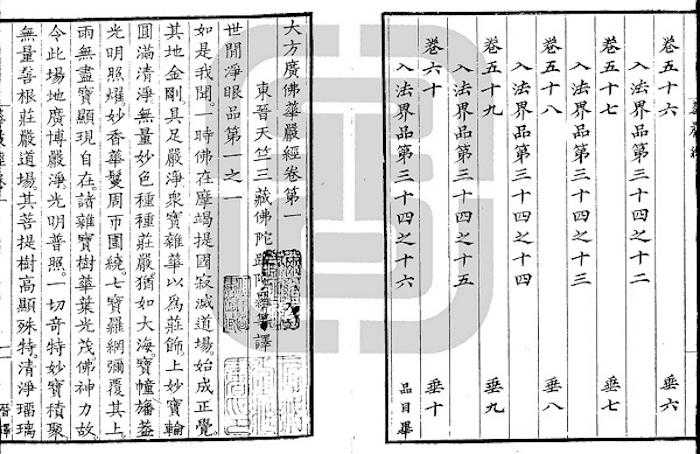 卷五十六 垂六
入法界品第三十四之十二
卷五十七 垂七
入法界品第三十四之十三
卷五十八 垂八
入法界品第三十四之十四
卷五十九 垂九
入法界品第三十四之十五
卷六十 垂十
入法界品第三十四之十六 品目畢
大方廣佛華嚴經卷第一
東晉天竺三藏佛陀跋陀羅等譯
世間淨眼品第一之一
如是我聞。一時佛在摩竭提國寂滅道場。始成正覺。
其地金剛。具足嚴淨。眾寶雜華以為莊飾。上妙寶輪
圓滿清淨。無量妙色種種莊嚴。猶如大海。寶幢旛蓋
光明照耀。妙香華鬘周帀圍繞。七寶羅網彌覆其上。
雨無盡寶。顯現自在。諸雜寶樹華葉光茂。佛神力故。
令此場地廣博嚴淨。光明普照。一切奇特妙寶積聚。
無量善根莊嚴道場。其菩提樹高顯殊特。清淨瑠璃